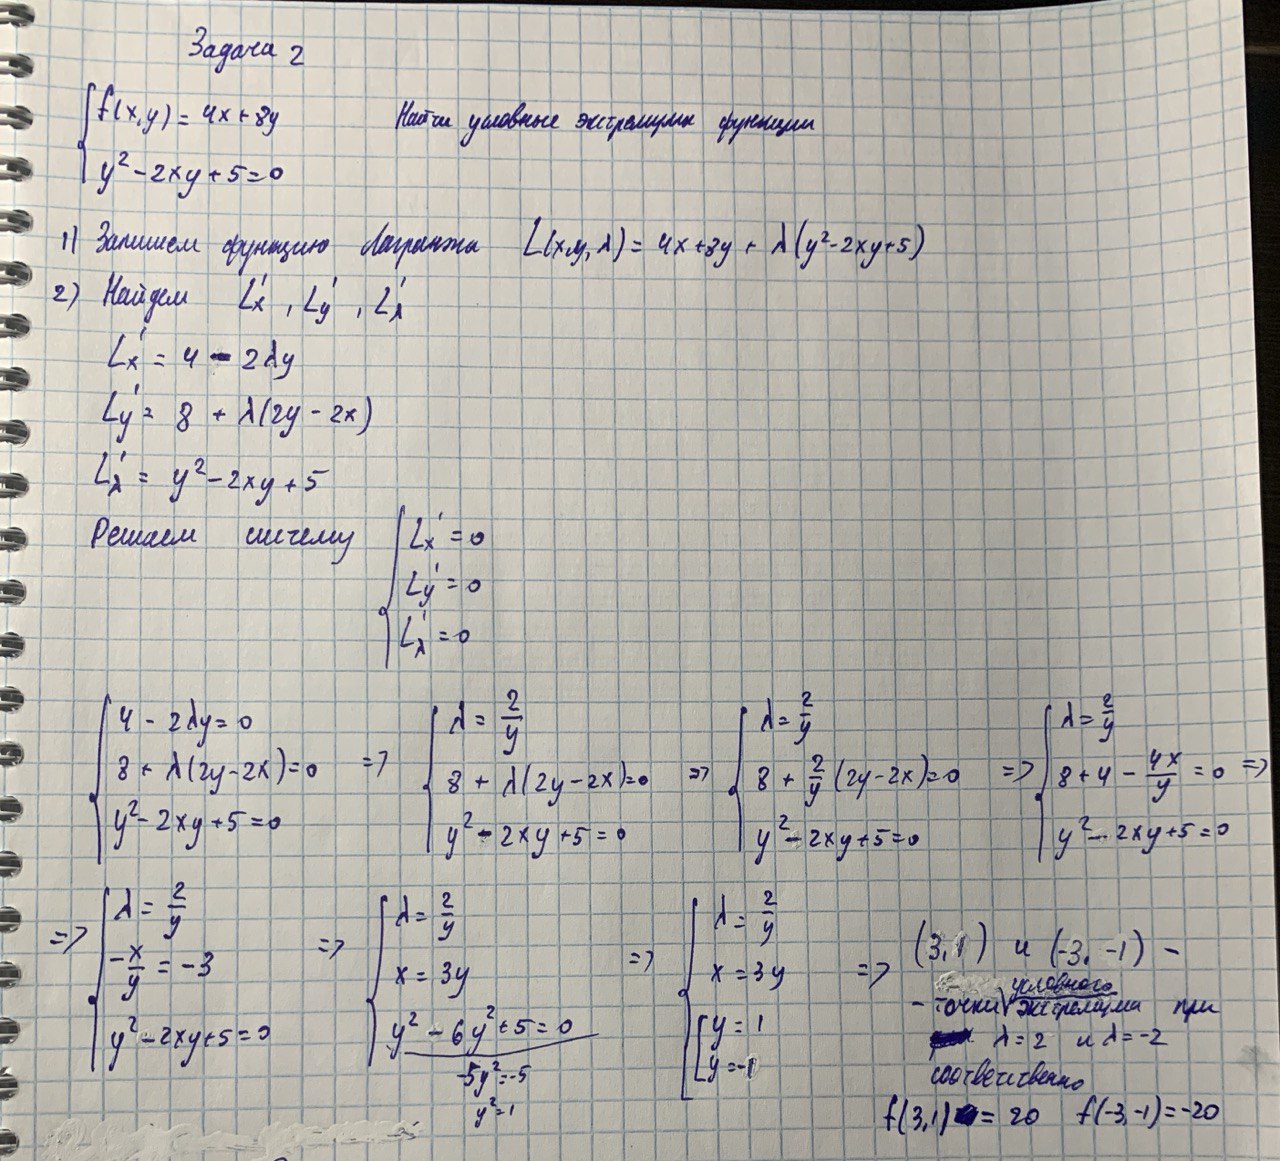 Задача 2
{ f(x,y) = 4x + 8y Найти условные экстремумы функции
y² - 2xy + 5 = 0
1) Запишем функцию Лагранжа L(x,y,λ) = 4x + 8y + λ(y² - 2xy + 5)
2) Найдем L'x , L'y , L'λ
L'x = 4 - 2λy
L'y = 8 + λ(2y - 2x)
L'λ = y² - 2xy + 5
Решаем систему { L'x = 0
L'y = 0
L'λ = 0
{ 4 - 2λy = 0
8 + λ(2y - 2x) = 0
y² - 2xy + 5 = 0
=> { λ = 2/y
8 + λ(2y - 2x) = 0
y² - 2xy + 5 = 0
=> { λ = 2/y
8 + 2/y (2y - 2x) = 0
y² - 2xy + 5 = 0
=> { λ = 2/y
8 + 4 - 4x/y = 0 =>
y² - 2xy + 5 = 0
=> { λ = 2/y
-x/y = -3
y² - 2xy + 5 = 0
=> { λ = 2/y
x = 3y
y² - 6y² + 5 = 0
-5y² = -5
y² = 1
=> { λ = 2/y
x = 3y
[ y = 1
y = -1
=> (3,1) и (-3,-1) -
- точки условного экстремума при
λ = 2 и λ = -2
соответственно
f(3,1) = 20 f(-3,-1) = -20